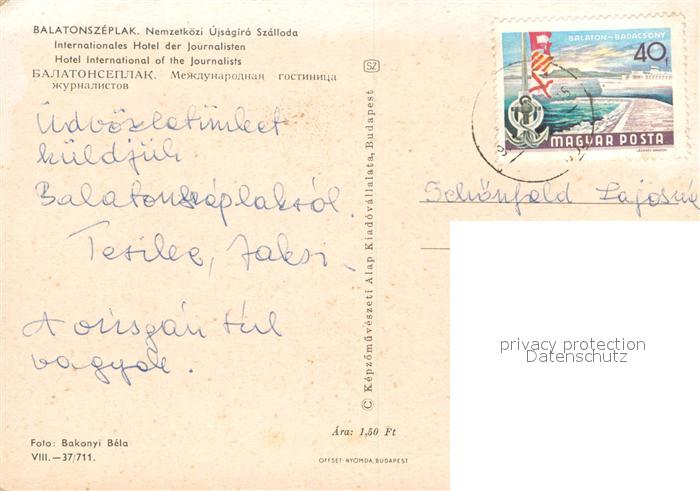 BALATONSZÉPLAK. Nemzetközi Újságíró Szálloda
Internationales Hotel der Journalisten
Hotel International of the Journalists
БАЛАТОНСЕПЛАК. Международная гостиница
журналистов
Üdvözletünket
küldjük
Balatonszéplakról.
A vizsgán túl
vagyok.
Foto: Bakonyi Béla
VIII.—37/711.
SZ
© Képzőművészeti Alap Kiadóvállalata, Budapest
Ára: 1,50 Ft
OFFSET-NYOMDA, BUDAPEST
BALATON–BADACSONY
40f
MAGYAR POSTA
Schönfeld Lajosné
privacy protection
Datenschutz